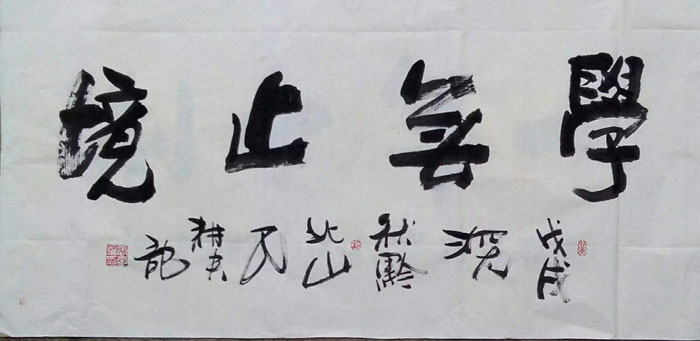 學無止境
戊戌深秋黔北山耕夫